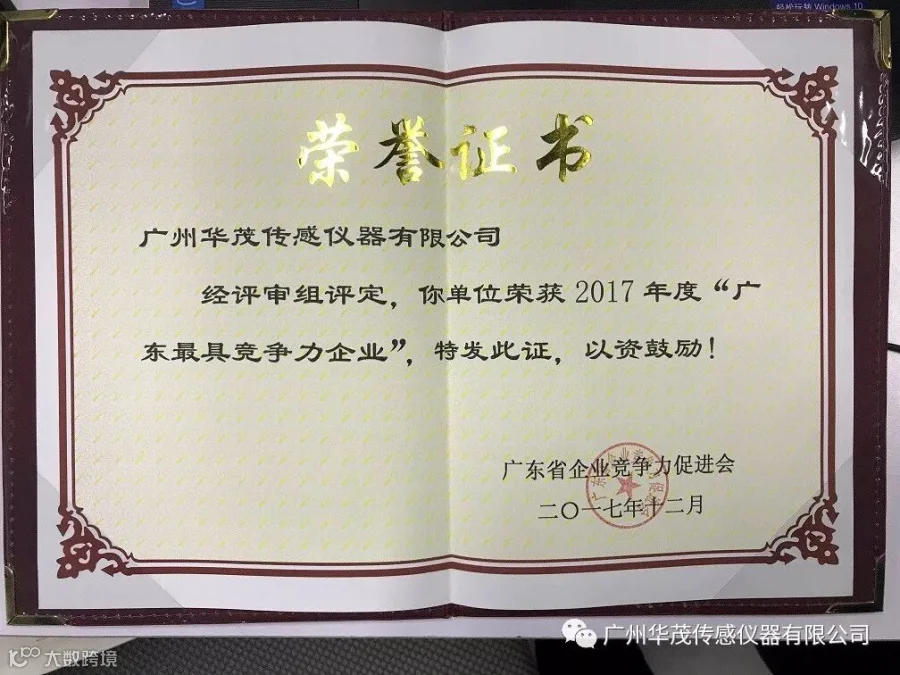 轻松玩转 Windows 10
荣誉证书
广州华茂传感仪器有限公司
经评审组评定，你单位荣获 2017 年度“广
东最具竞争力企业”，特发此证，以资鼓励！
广东省企业竞争力促进会
二〇一七年十二月
广州华茂传感仪器有限公司
大数跨境